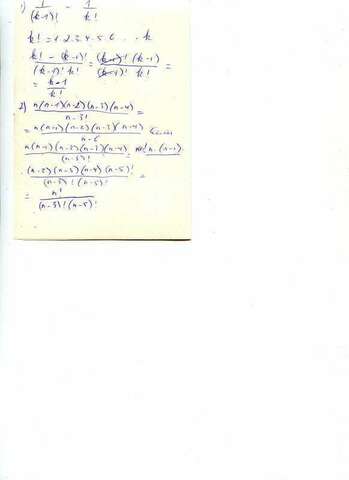 1) 1/(k-1)! - 1/k!
k! = 1·2·3·4·5·6 ... · k
(k! - (k-1)!)/((k-1)! k!) = ((k-1)! (k-1))/((k-1)! k!) =
= (k-1)/k!
2) (n(n-1)(n-2)(n-3)(n-4))/(n-3!) =
= (n(n-1)(n-2)(n-3)(n-4))/(n-6)
(n(n-1)(n-2)(n-3)(n-4))/((n-3)!) = n·(n-1)·
((n-2)(n-3)(n-4)(n-5)!)/((n-3)! (n-5)!) =
= n!/((n-3)! (n-5)!)